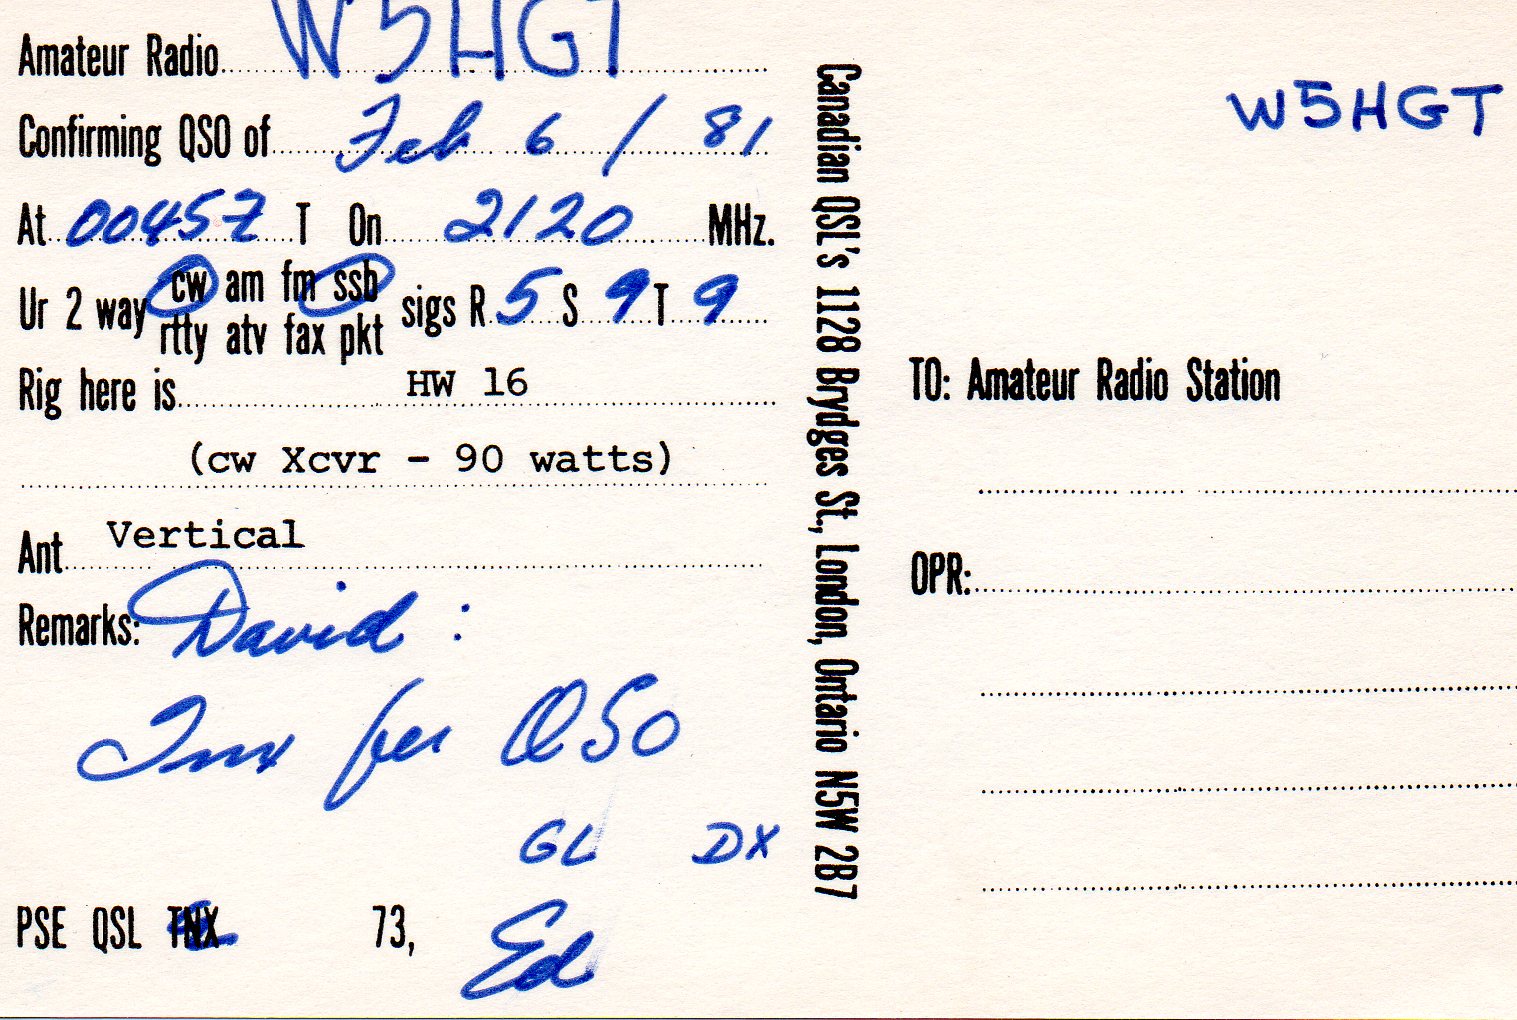 Amateur Radio W5HGT
Confirming QSO of Feb 6 / 81
At 0045Z T On 2120 MHz.
Ur 2 way cw am fm ssb sigs R 5 S 9 T 9
rtty atv fax pkt
Rig here is HW 16
(cw Xcvr - 90 watts)
Ant Vertical
Remarks: David :
Tnx fer QSO
GL DX
PSE QSL TNX 73, Ed
Canadian QSL's 1128 Brydges St., London, Ontario N5W 2B7
W5HGT
TO: Amateur Radio Station
OPR: